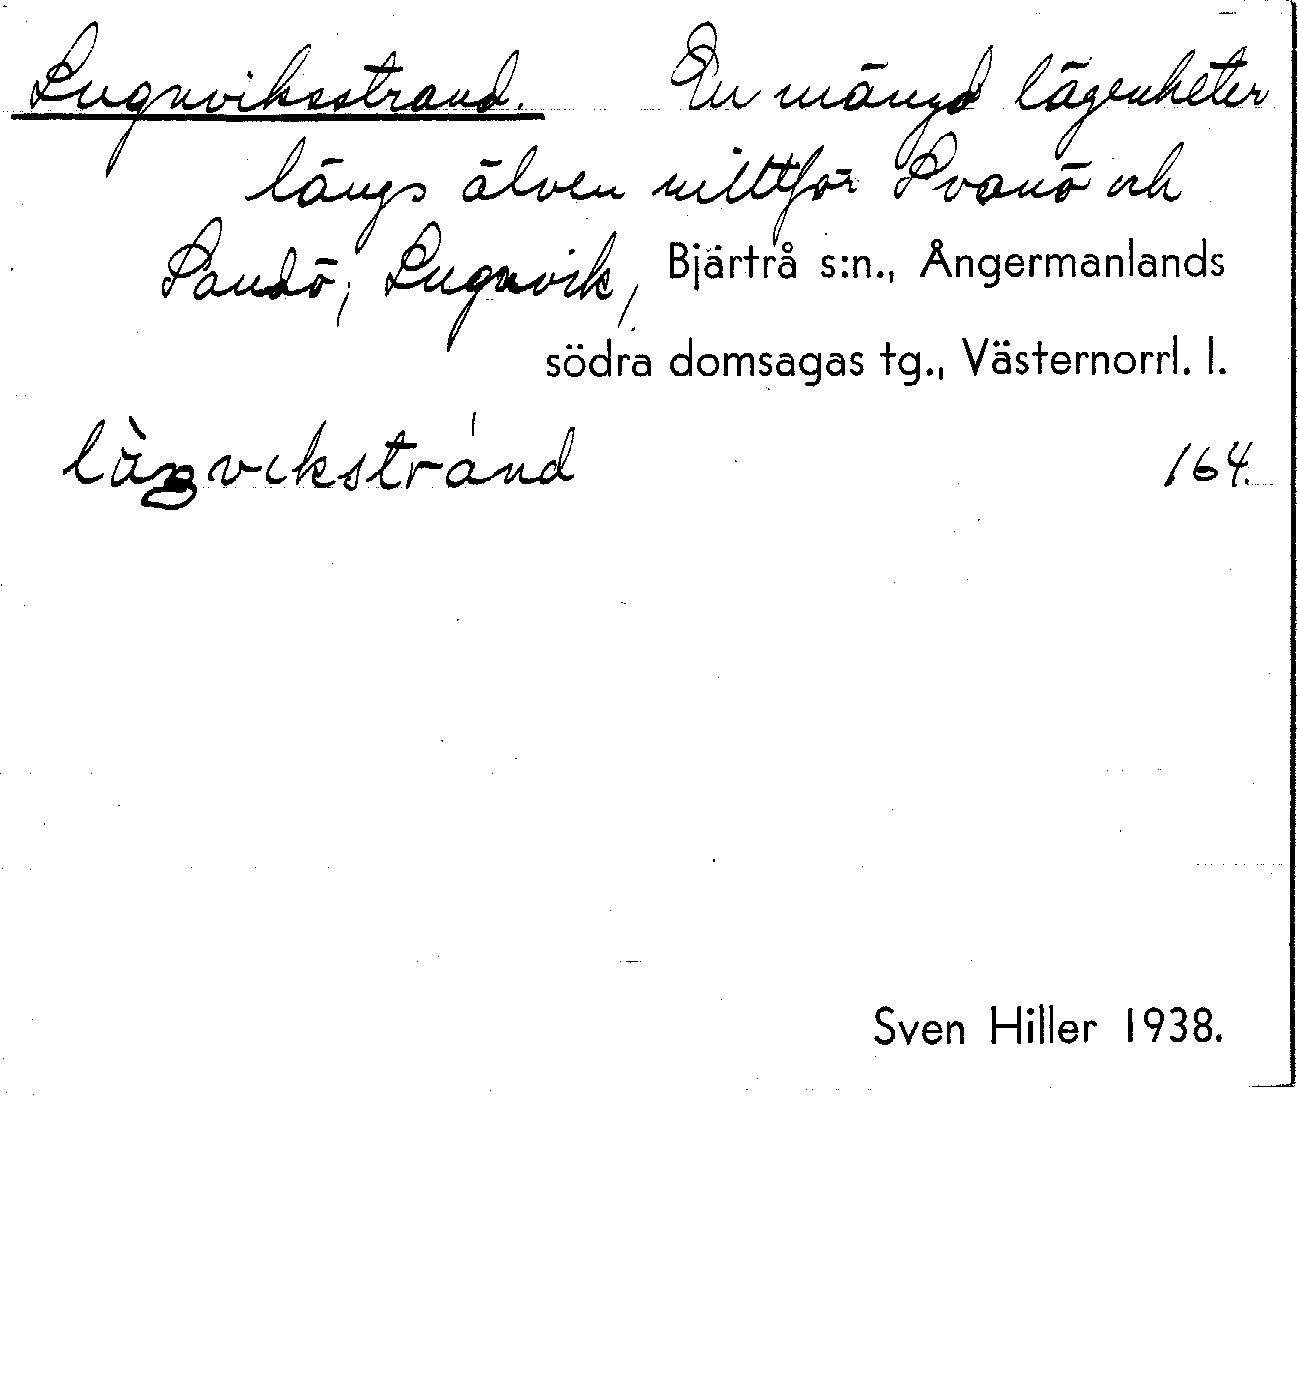 Lugnviksstrand. En mängd lägenheter
längs älven mittför Svanö och
Sandö, Lugnvik, Bjärtrå s:n., Ångermanlands
södra domsagas tg., Västernorrl. l.
164.
Sven Hiller 1938.